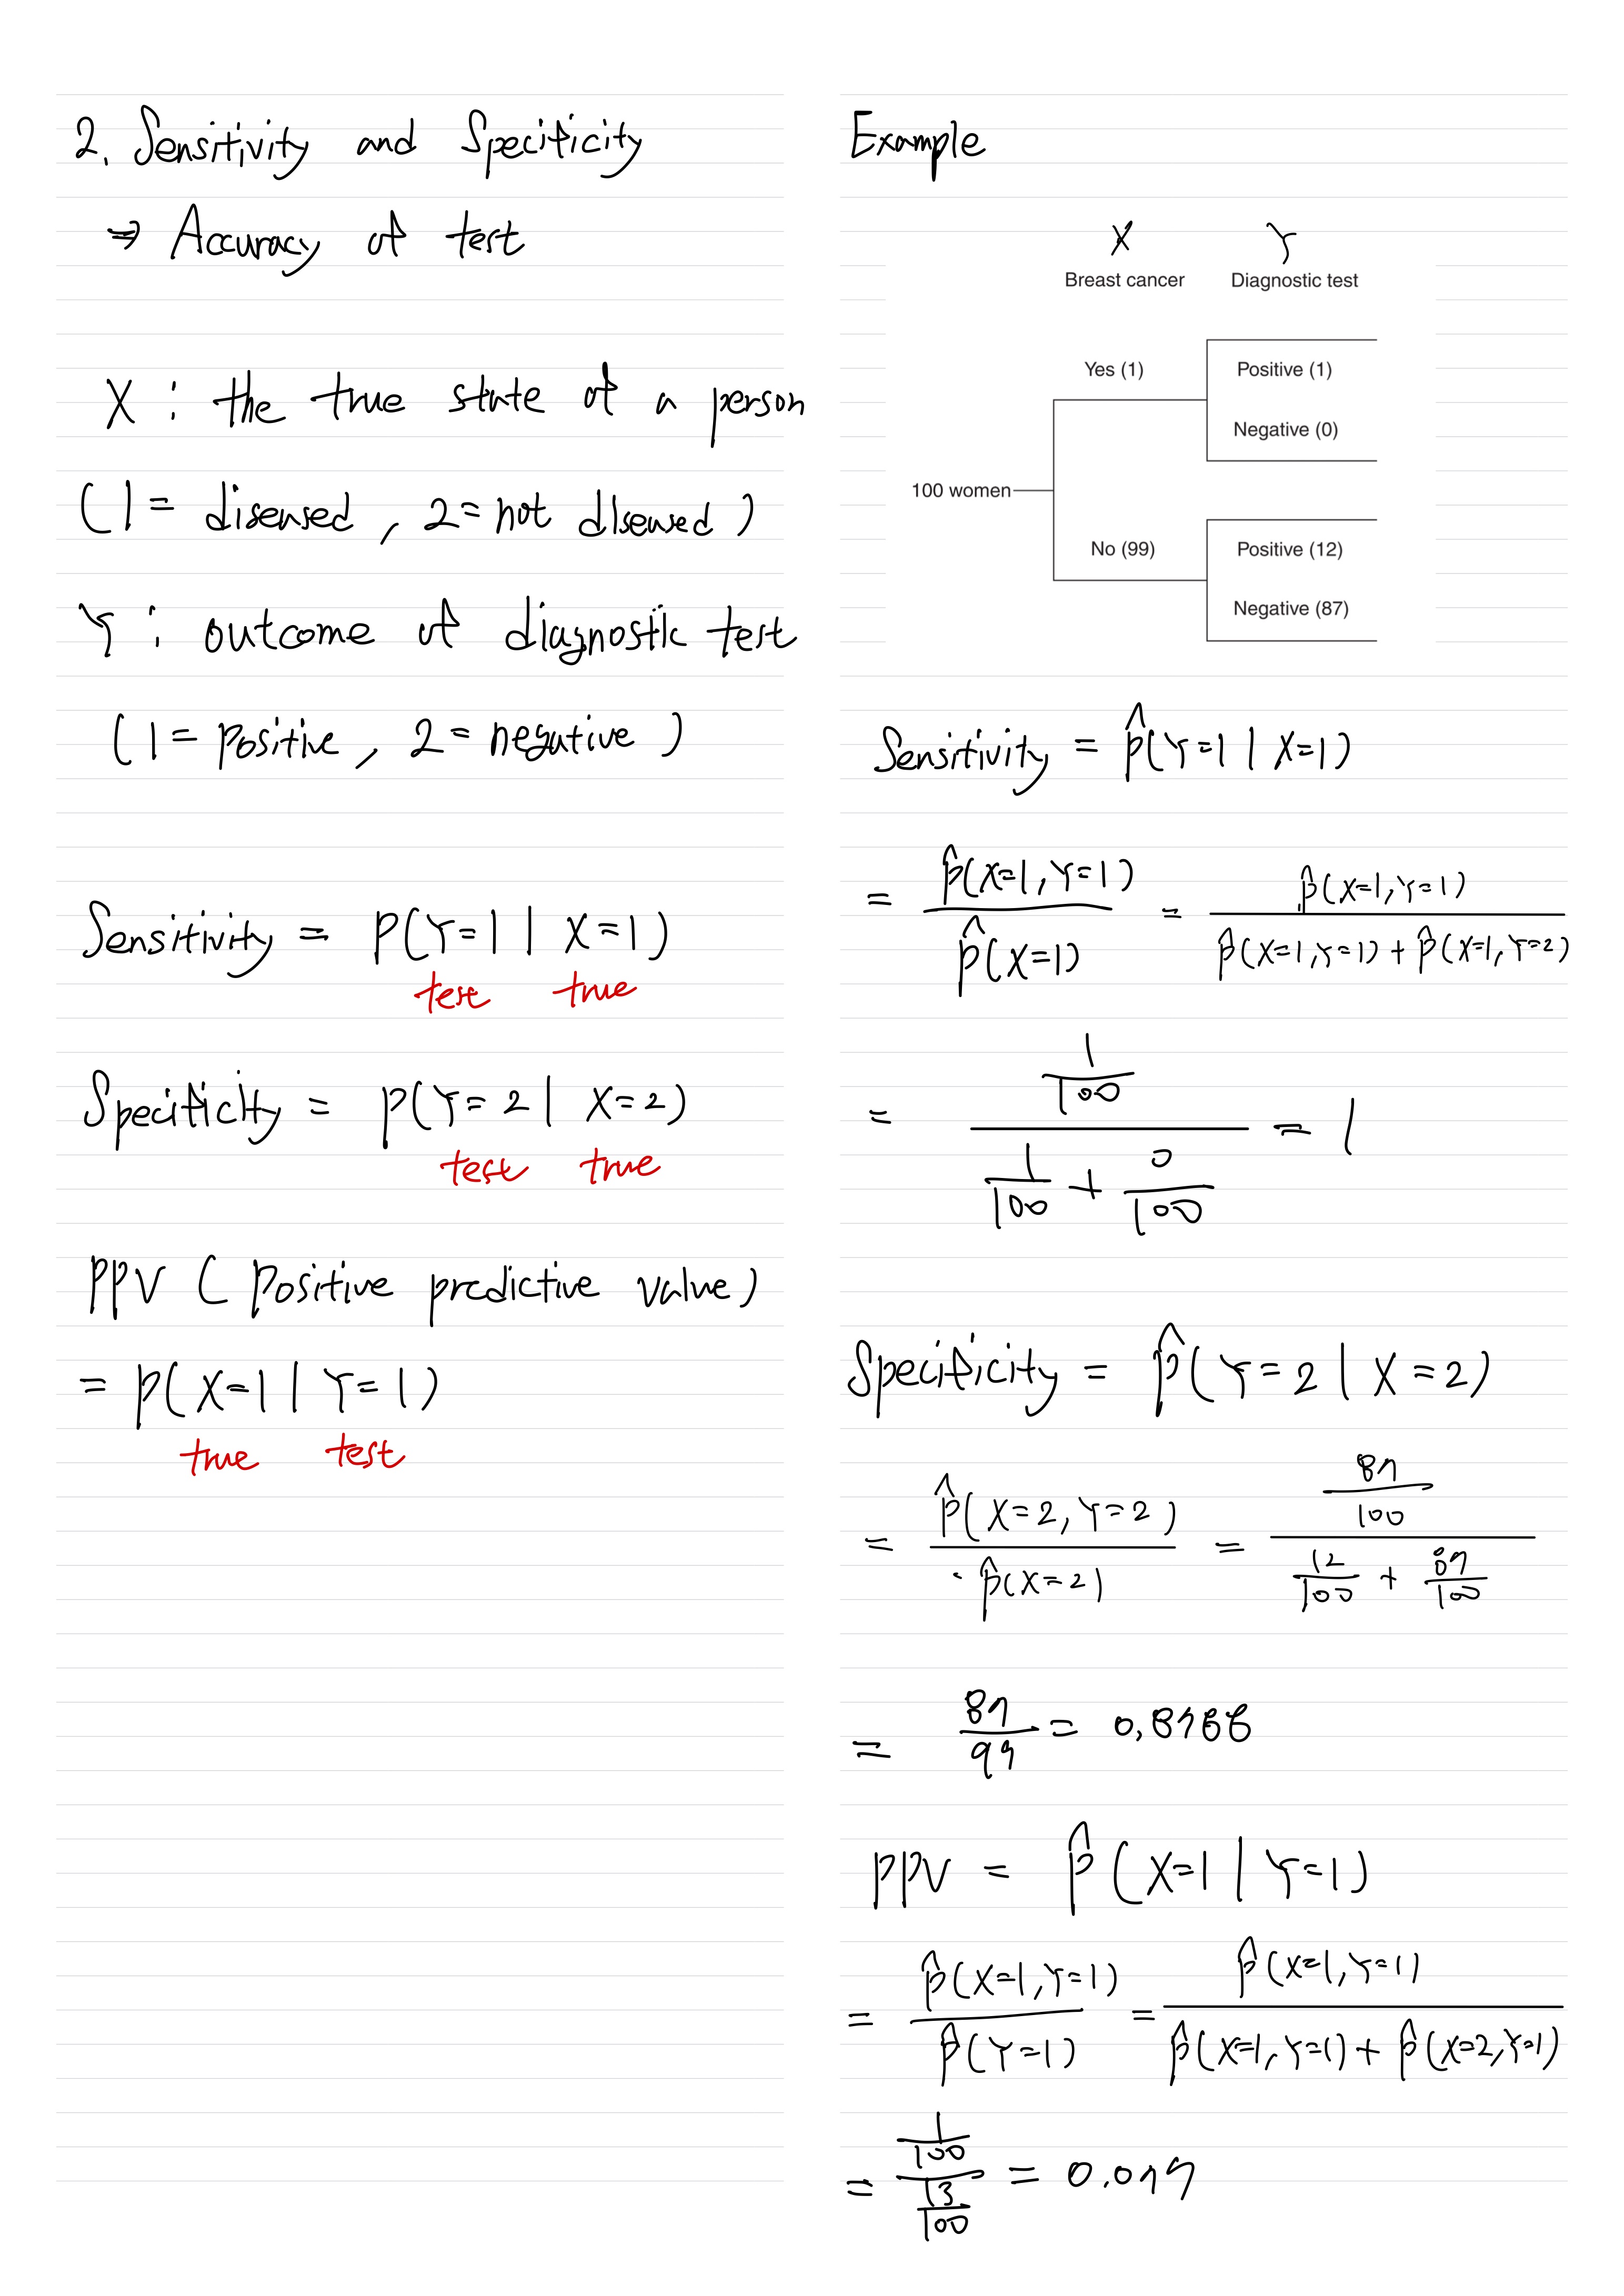 2. Sensitivity and Specificity
⇒ Accuracy of test
X : the true state of a person
(1 = diseased , 2 = not diseased )
Y : outcome of diagnostic test
(1 = positive , 2 = negative )
Sensitivity = P(Y=1 | X=1)
test true
Specificity = P(Y=2 | X=2)
test true
PPV ( Positive predictive value)
= P(X=1 | Y=1)
true test
Example
X Y
Breast cancer Diagnostic test
Yes (1) Positive (1)
Negative (0)
100 women
No (99) Positive (12)
Negative (87)
Sensitivity = P̂(Y=1 | X=1)
= P̂(X=1, Y=1) / P̂(X=1) = P̂(X=1, Y=1) / P̂(X=1, Y=1) + P̂(X=1, Y=2)
= 1/100 / 1/100 + 0/100 = 1
Specificity = P̂(Y=2 | X=2)
= P̂(X=2, Y=2) / P̂(X=2) = 87/100 / 12/100 + 87/100
= 87/99 = 0.8788
PPV = P̂(X=1 | Y=1)
= P̂(X=1, Y=1) / P̂(Y=1) = P̂(X=1, Y=1) / P̂(X=1, Y=1) + P̂(X=2, Y=1)
= 1/100 / 13/100 = 0.077